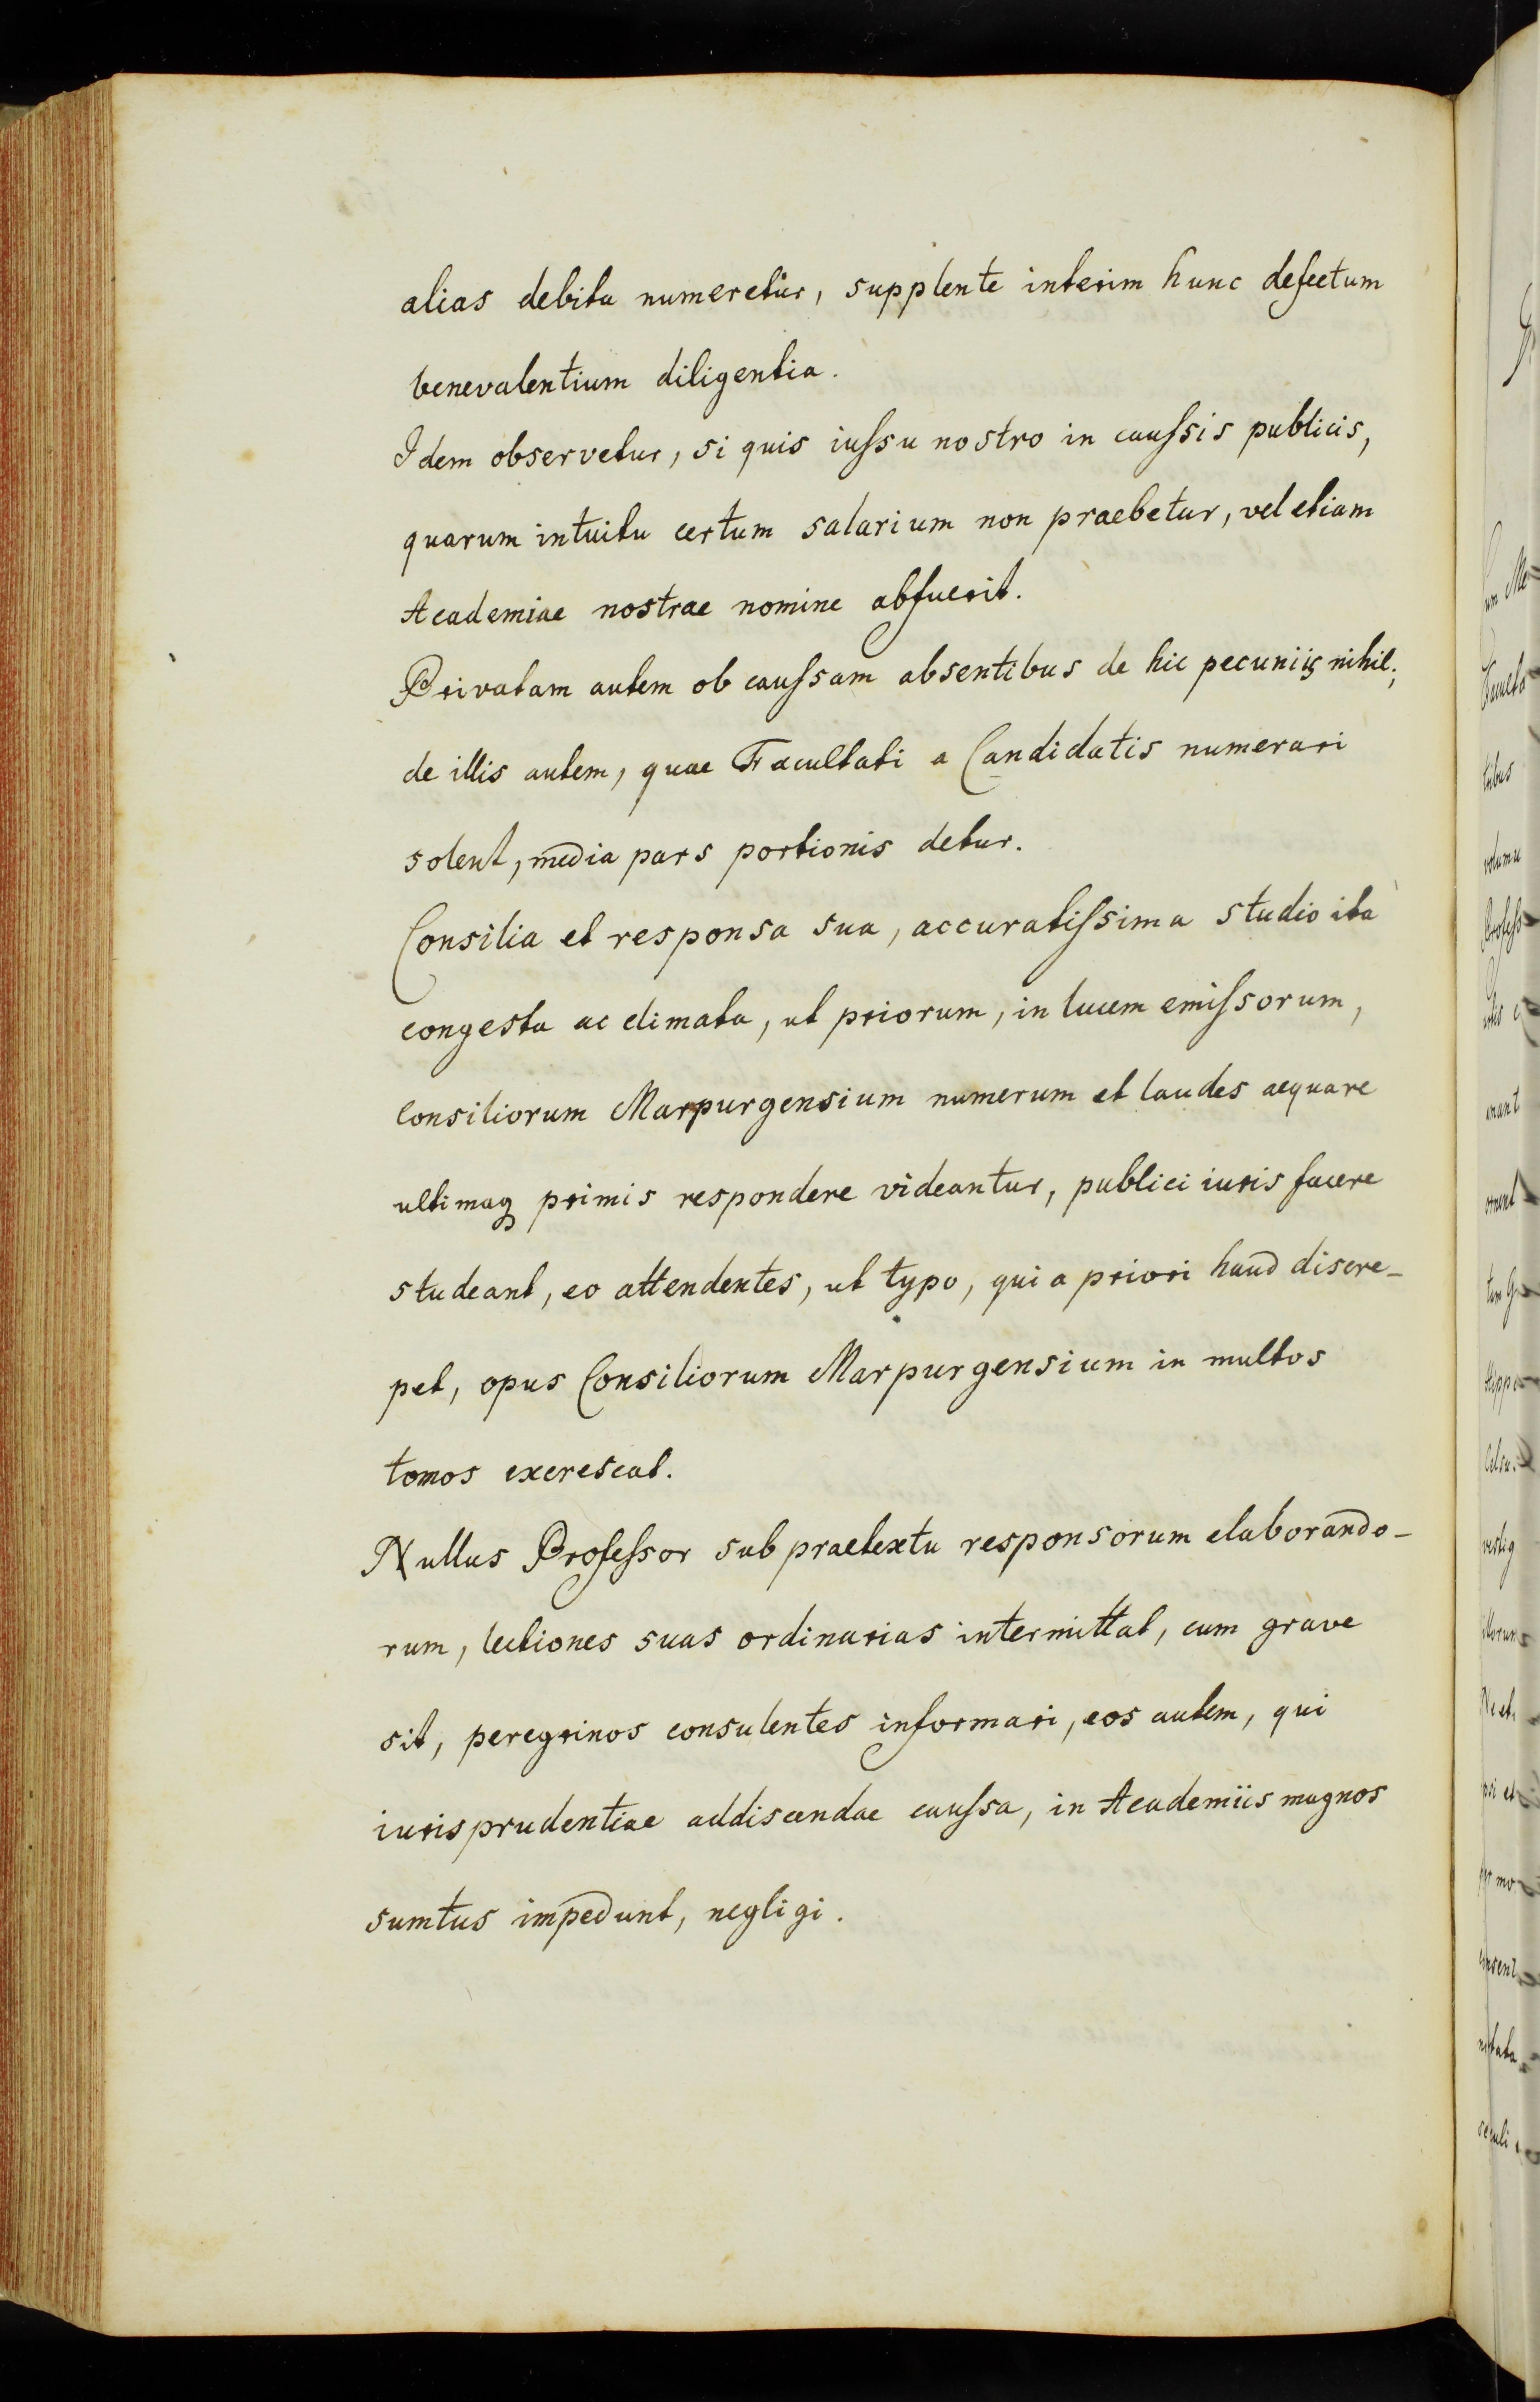 alias debita numeretur, supplente interim hunc defectum
benevalentium diligentia.
Idem observetur, si quis iuſsu nostro in cauſsis publicis,
quarum intuitu certum salarium non praebetur, vel etiam
Academiae nostrae nomine abfuerit.
Privatam autem ob cauſsam absentibus de hic pecuniis nihil;
de illis autem, quae Facultati a Candidatis numerari
solent, media pars portionis detur.
Consilia et responsa sua, accuratiſsima studio ita
congesta ac elimata, ut priorum, in lucem emiſsorum,
Consiliorum Marpurgensium numerum et laudes aequare
ultimaq primis respondere videantur, publici iuris facere
studeant, eo attendentes, ut typo, qui a priori haud discre-
pet, opus Consiliorum Marpurgensium in multos
tomos excrescat.
Nullus Profeſsor sub praetextu responsorum elaborando-
rum, lectiones suas ordinarias intermittat, cum grave
sit, peregrinos consulentes informari, eos autem, qui
iurisprudentiae addiscendae cauſsa, in Academiis magnos
sumtus impedunt, negligi.